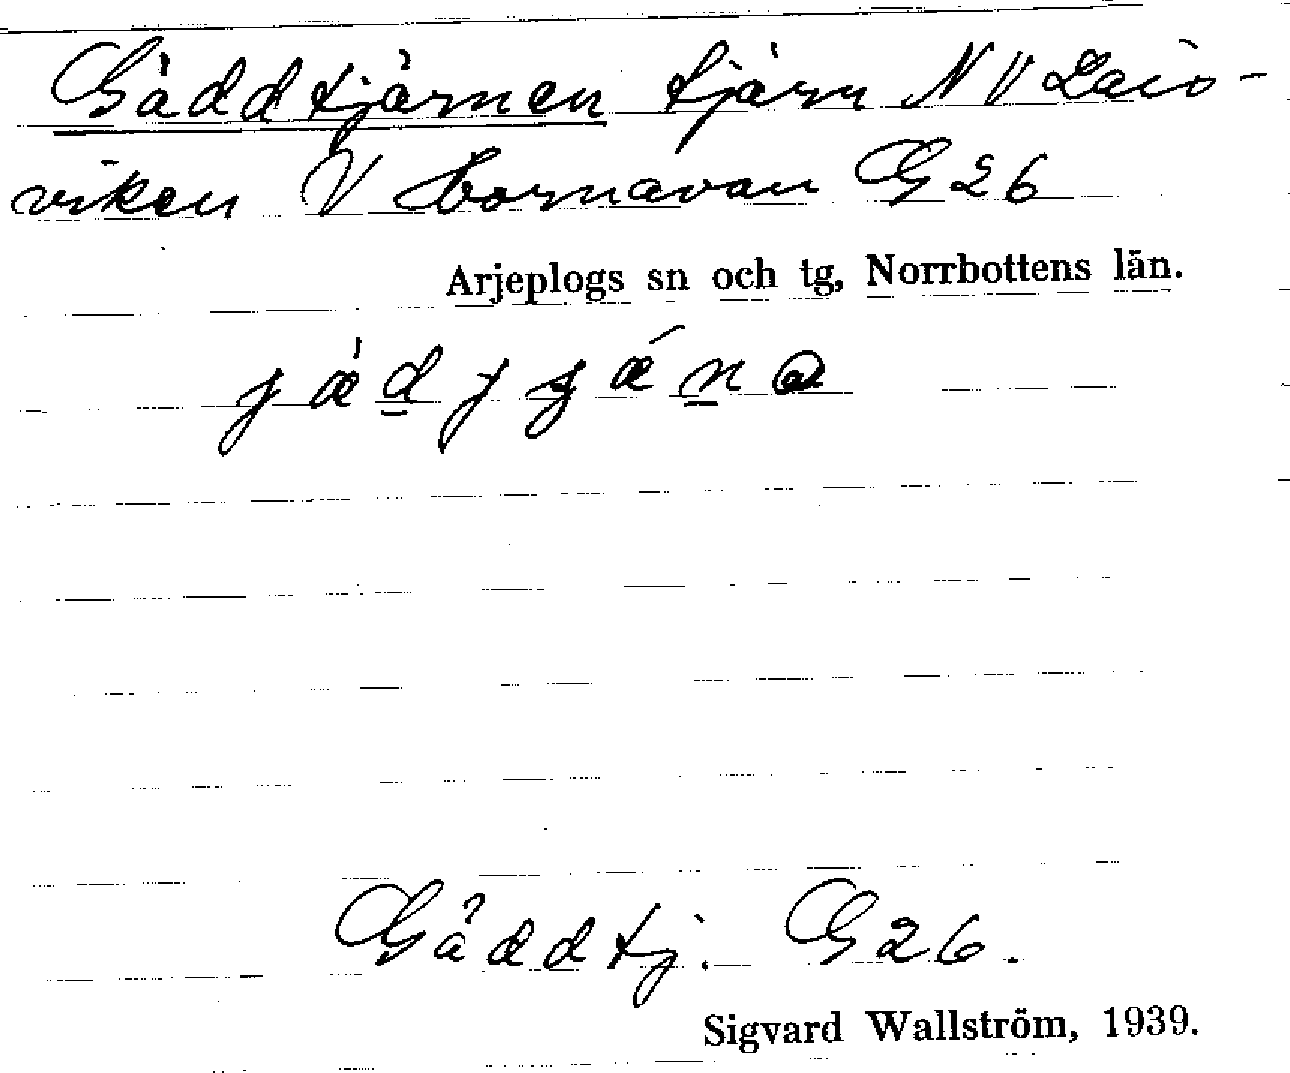 Gäddtjärnen tjärn NV Lais-
viken V Hornavan G 26
Arjeplogs sn och tg, Norrbottens län.
Gäddtj. G 26.
Sigvard Wallström, 1939.